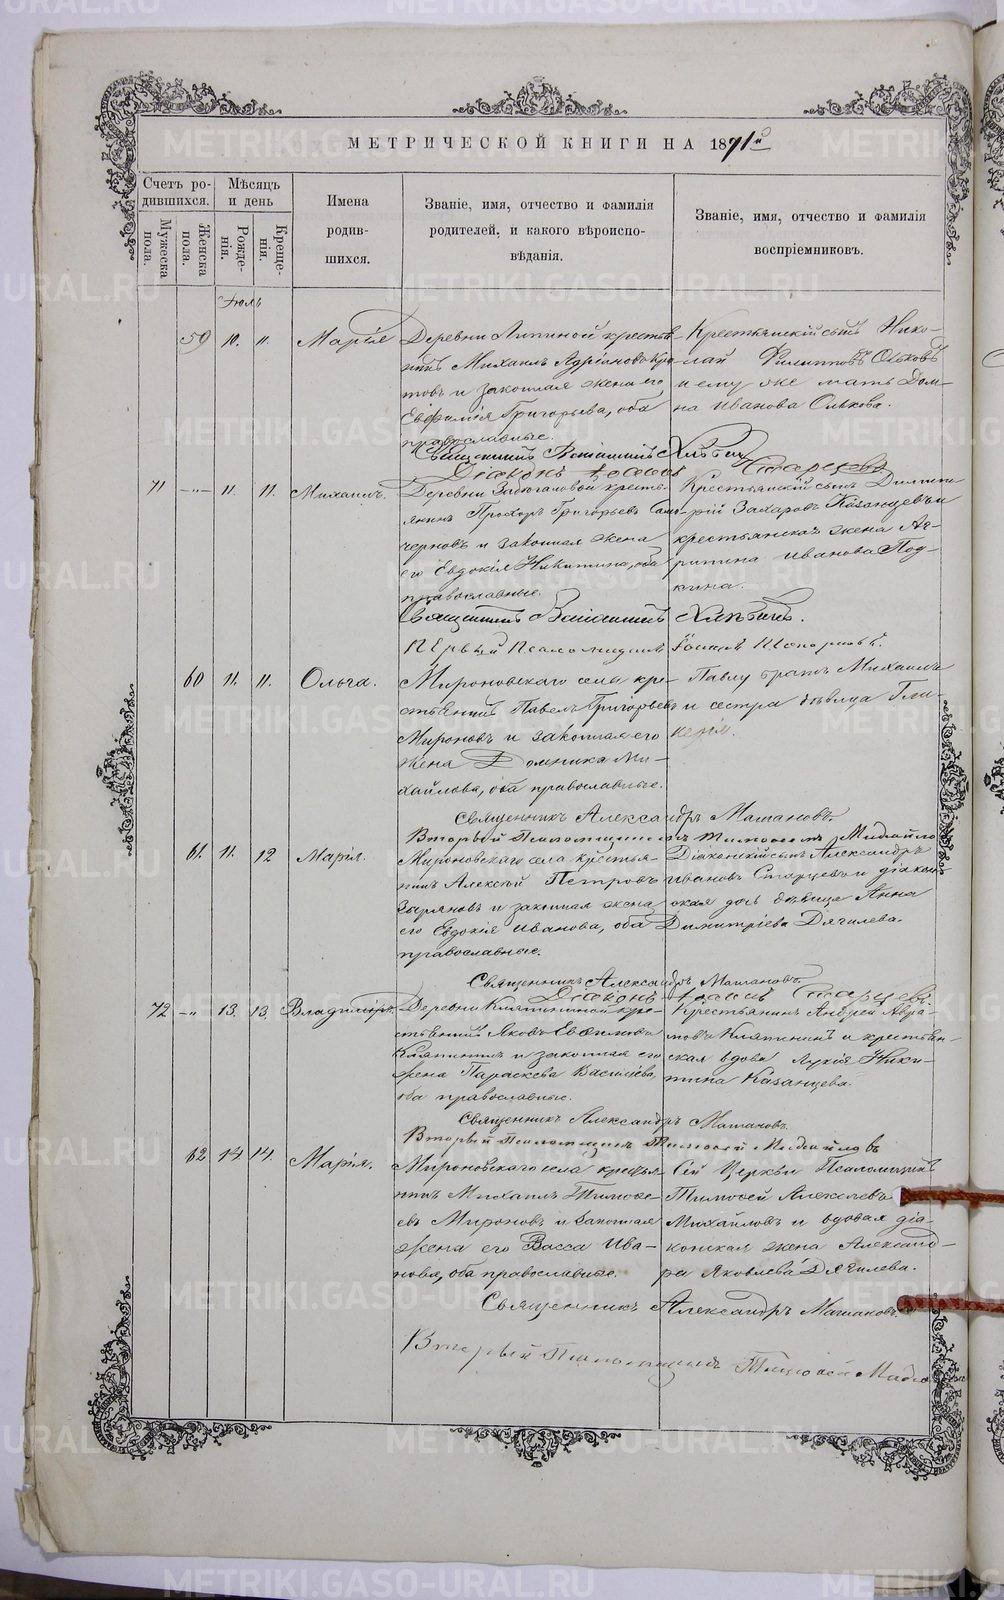 МЕТРИЧЕСКОЙ КНИГИ НА 1871й
Счетъ ро-
дившихся.
Мѣсяцъ
и день
Имена
родив-
шихся.
Званіе, имя, отчество и фамилія
родителей, и какого вѣроиспо-
вѣданія.
Званіе, имя, отчество и фамилія
воспріемниковъ.
Мужеска
пола.
Женска
пола.
Рожде-
нія.
Креще-
нія.
Іюль
59 10. 11. Марія
Деревни Липиной крестья-
нинъ Михаилъ Адріановъ
товъ и законная жена его
Евфимія Григорьева, оба
православные.
Крестьянскій сынъ Нико-
лай Филипповъ Ольковъ
и ему же мать Дом-
на Иванова Олькова.
Священникъ Веніаминъ Хлѣбинъ
Діаконъ Старцевъ
71 -"- 11. 11. Михаилъ.
Деревни крестья-
янинъ Прохоръ Григорьевъ Само-
черновъ и законная жена
его Евдокія Никитина, оба
православные.
Крестьянскій сынъ Дими-
трій Захаровъ Казанцевъ и
крестьянская жена Аг-
рипина Иванова Под-
кина.
Священникъ Веніаминъ Хлѣбинъ.
Первый Псаломщикъ
60 11. 11. Ольга.
Мироновскаго села кре-
стьянинъ Павелъ Григорьевъ
Мироновъ и законная его
жена Домника Ми-
хайлова, оба православные.
Павлу братъ Михаилъ
и сестра дѣвица Гли-
керія.
Священникъ Александръ Машановъ.
Второй Псаломщикъ Тимофей Михайло
61. 11. 12 Марія.
Мироновскаго села крестья-
нинъ Алексѣй Петровъ
Зыряновъ и законная жена
его Евдокія Иванова, оба
православные.
Діаконскій сынъ Александръ
Ивановъ Старцевъ и діакон-
ская дочь дѣвица Анна
Димитріева Дягилева.
Священникъ Александръ Машановъ.
Діаконъ Старцевъ.
72 -"- 13. 13. Владиміръ.
Деревни Кляпининой кре-
стьянинъ Яковъ Евфимовъ
Кляпининъ и законная его
жена Параскева Васильева,
оба православные.
Крестьянинъ Андрей Авра-
мовъ Кляпининъ и крестьян-
ская вдова Лукія Ники-
тина Казанцева.
Священникъ Александръ Машановъ.
Второй Псаломщикъ Тимофей Михайловъ
62 14 14. Марія.
Мироновскаго села крестья-
нинъ Михаилъ Тимофе-
евъ Мироновъ и законная
жена его Васса Ива-
нова, оба православные.
Сей Церкви Псаломщикъ
Тимофей Алексѣевъ
Михайловъ и вдовая діа-
конская жена Александ-
ра Яковлева Дягилева.
Священникъ Александръ Машановъ.
Второй Псаломщикъ Тимофей Михайло
METRIKI.GASO-URAL.RU